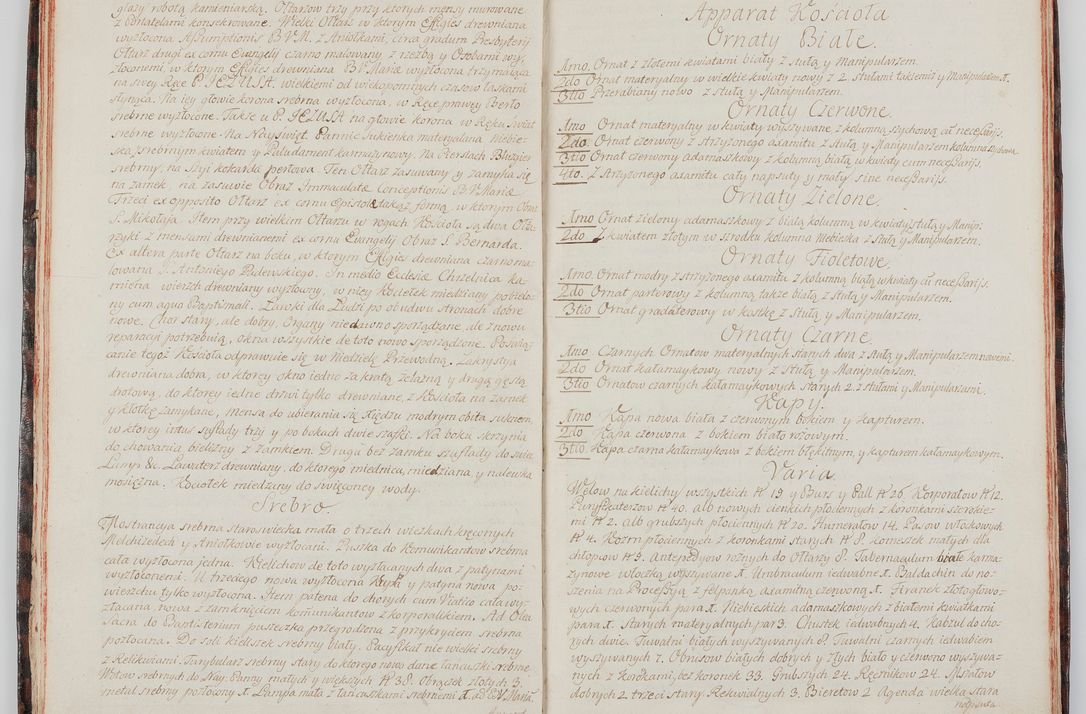 głazy robotą kamieniarską. Ołtarzow trzy przy ktorych mensy murowane
z Portatelami konsekrowane. Wielki Ołtarz w ktorym Effigies drewniana
wyzłocona Assumptionis B.V.M. z Aniołkami, circa gradum Presbyterij
Ołtarz drugi ex cornu Evangelij czarno malowany z rzezbą y Osobami wy,
złoconemi, w ktorym Effigies drewniana B.V. Mariæ wyzłocona trzymaiąca
na swey Ręce P. JEZUSA, wielkiemi od wiekopomnych czasow łaskami
słynąca. Na iey głowie korona srebrna wyzłocona, w Ręce prawey Berło
srebrne wyzłocone. Także u P. JEZUSA na głowie korona w Ręku Swiat
srebrne wyzłocone. Na Nayswięt: Pannie Sukienka materyalna niebie-
ska srebrnym kwiatem y Paludament karmazynowy. Na Piersiach
srebrny, na Szyi kokarda perłowa. Ten Ołtarz zasuwany y zamyka się
na zamek, na zasuwie Obraz Immaculatæ Conceptionis B.V. Mariæ
Trzeci ex opposito Ołtarz ex cornu Epistolæ takąż formą, w ktorym Obraz
S. Mikołaja. Item przy wielkim Ołtarzu w rogach Kościoła są dwa Ołta-
rzyki z mensami drewnianemi ex cornu Evangelij Obraz S. Bernarda.
Ex altera parte Ołtarz na boku, w ktorym Effigies drewniana czarno ma-
lowana S. Antoniego Padewskiego. In medio Ecclesiæ Chrzelnica ka-
mienna wierzch drewniany wyzłocony, w niey Kociełek miedziany pobiela-
ny cum aqua Baptismali. Ławki dla Ludzi po obudwu stronach dobre
nowe. Chor stary, ale dobry, Organy niedawno sporządzone, ale znowu
reparacyi potrzebuią, okna wszystkie de toto nowo sporządzone. Poświę-
canie tegoż Kościoła odprawuie się w Niedzielę Przewodną. Zakrystya
drewniana dobra, w ktorey okno iedno za kratą żelazną y drugą gęstą
drotową, do ktorey iedne drzwi tylko drewniane, z Kościoła na zamek
y klotkę zamykane, mensa do ubierania się Xiędzu modrym obita suknem,
w ktorey intus szuflady trzy y po bokach dwie szafki. Na boku skrzynia
do chowania bielizny z zamkiem. Druga bez zamku szuflady do swiec
Lunys &c. Lawaterz drewniany, do ktorego miednica, miedziana y nalewka
mosiężna. Kociełek miedziany do święconey wody.
Srebro.
Monstrancya srebrna staroświecka mała o trzech wieżkach kręconych
Melchizedech y Aniołkowie wyzłocani. Puszka do Komunikantow srebrna
cała wyzłocona jedna. Kielichow de toto wyzłacanych dwa z patynami
wyzłoconemi. U trzeciego nowa wyzłocona Kupa y patyna nowa po-
wierzchu tylko wyzłocona. Item patena do chorych cum Viatico cała wy-
złacana nowa z zamknięciem komunikantow z korporalikiem. Ad Olea
Sacra do Baptisterium puszeczka przegrodzona z przykryciem srebrna
pozłocana. Do soli kieliszek srebrny biały. Pacyfikał nie wielki srebrny
z Relikwiami. Turybularz srebrny stary do ktorego nowo dane łańcuszki srebrne
Wotow srebrnych do Nay: Panny małych y większych N 38. Obrączek złotych 3.
metal srebrny pozłocony 1. Lampa mała z łańcuszkami srebrnemi 1. ad B.V. Mariæ.
Apparat Kościoła
Ornaty Białe.
1mo. Ornat z złotemi kwiatami biały z stułą y Manipularzem.
2do Ornat materyalny w wielkie kwiaty nowy z 2. Stułami takiemiż y Manipularzem 1.
3tio Przerabiany nowo z stułą y Manipularzem.
Ornaty Czerwone.
1mo Ornat materyalny w kwiaty wyszywane z kolumną szychową cũ necessarijs.
2do. Ornat czerwony z Strzyżonego axamitu z Stułą y Manipularzem kolumna Szychowa
3tio Ornat czerwony adamaszkowy z kolumną białą w kwiaty cum necessarijs.
4to. Z Strzyżonego axamitu cały napsuty y mały sine necessarijs.
Ornaty Zielone.
1mo Ornat zielony adamaszkowy z białą kolumną w kwiaty z stułą y Manip:
2do Z kwiatem złotym w srzodku kolumna niebieska z Stułą y Manipularzem.
Ornaty Fioletowe.
1mo. Ornat modry z strzyżonego axamitu z kolumną białą w kwiaty cũ necessarijs.
2do Ornat parterowy z kolumną także białą z Stułą y Manipularzem.
3tio Ornat gradaterowy w kostkę z Stułą y Manipularzem.
Ornaty Czarne.
1mo Czarnych Ornatow materyalnych starych dwa z stułą y Manipularzem nowemi.
2do Ornat kałamaykowy nowy z Stułą y Manipularzem.
3tio Ornatow czarnych kałamaykowych starych 2. z Stułami y Manipularzami.
Kapy.
1mo Kapa nowa biała z czerwonym bokiem y kapturem.
2do Kapa czerwona z bokiem biało rożowym.
3tio Kapa czarna kałamaykowa z bokiem błękitnym, y kapturem kałamaykowym.
Varia.
Welow na kielichy wszystkich N 19 y Burs y Pall N 26. Korporałow N 12.
Puryfikaterzow N 40. alb nowych cienkich płociennych z koronkami szerokie-
mi N 2. alb grubszych płociennych N 20. Humerałow 14. Pasow włoczkowych
N 4. Komż płociennych z koronkami starych N 8. komeszek małych dla
chłopcow N 5. Antepedyow rożnych do Ołtarzy 8. Tabernaculum białe karma-
zynowe włoczką wyszywane 1. Umbraculum iedwabne 1. Baldachin do no-
szenia na Processyą z felpanką axamitną czerwoną 1. Firanek złotogłowo-
wych czerwonych para 1. Niebieskich adamaszkowych z białemi kwiatkami
para 1. Starych materyalnych par 3. Chustek iedwabnych 4. Kabzul do cho-
rych dwie. Tuwalni białych wyszywanych 8. Tuwalni czarnych iedwabiem
wyszywanych 7. Obrusow białych dobrych y złych biało y czerwono wyszywa-
nych z koronkami, bez koronek 33. Grubszych 24. Ręcznikow 24. Mszałow
dobrych 2. trzeci stary Rekwialnych 3. Bieretow 2. Agenda wielka stara
napsuta.